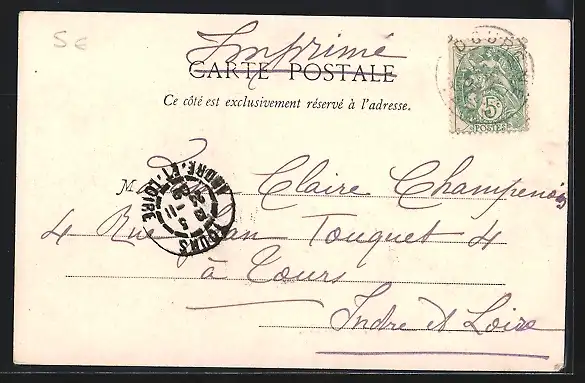 5€
Imprimé
CARTE POSTALE
Ce côté est exclusivement réservé à l'adresse.
5c
POSTES
M Claire Champenois
4 Rue Jean Touquet 4
à Tours
Indre et Loire
TOURS
INDRE-ET-LOIRE